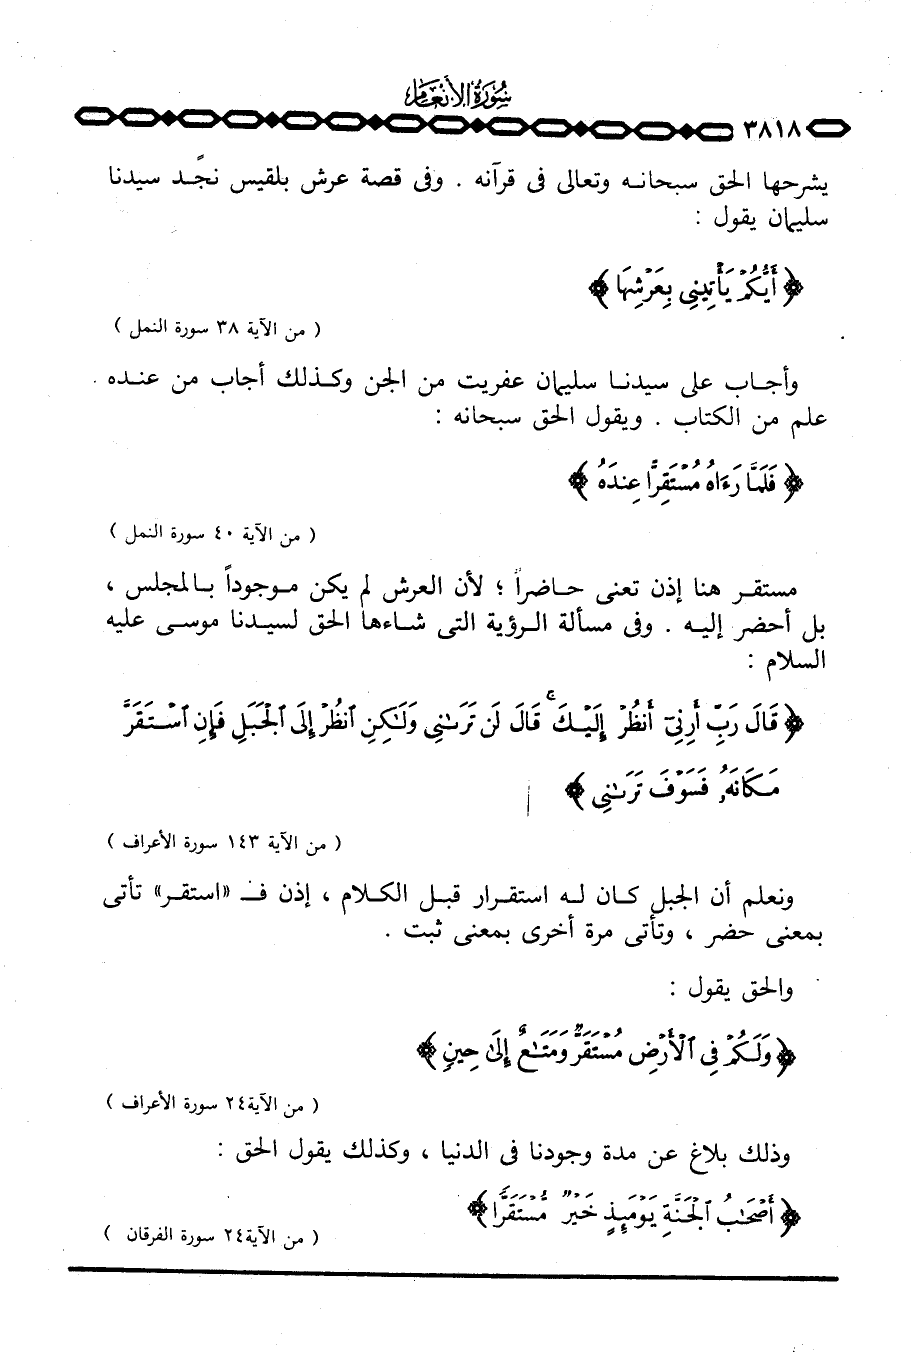 سُورَةُ الأَنْعَامِ
٣٨١٨
يشرحها الحق سبحانـه وتعالى فى قرآنه . وفى قصة عرش بلقيس نجَـد سيدنا
سليمان يقول :
﴿ أَيُّكُمْ يَأْتِينِي بِعَرْشِهَا ﴾
( من الآية ٣٨ سورة النمل )
وأجـاب على سيدنـا سليمان عفريت من الجن وكـذلك أجاب من عنـده
علم من الكتاب . ويقول الحق سبحانه :
﴿ فَلَمَّا رَءَاهُ مُسْتَقِرًّا عِندَهُ ﴾
( من الآية ٤٠ سورة النمل )
مستقـر هنا إذن تعنى حـاضراً ؛ لأن العرش لم يكن مـوجوداً بـالمجلس ،
بل أحضر إليـه . وفى مسألة الـرؤية التى شـاءها الحق لسيـدنا موسى عليه
السلام :
﴿ قَالَ رَبِّ أَرِنِيٓ أَنظُرْ إِلَيْكَ ۚ قَالَ لَن تَرَىٰنِي وَلَٰكِنِ ٱنظُرْ إِلَى ٱلْجَبَلِ فَإِنِ ٱسْتَقَرَّ
مَكَانَهُۥ فَسَوْفَ تَرَىٰنِي ﴾
( من الآية ١٤٣ سورة الأعراف )
ونعلم أن الجبل كـان لـه استقـرار قبـل الكـلام ، إذن فـ «استقـر» تأتى
بمعنى حضر ، وتأتى مرة أخرى بمعنى ثبت .
والحق يقول :
﴿ وَلَكُمْ فِي ٱلْأَرْضِ مُسْتَقَرٌّ وَمَتَٰعٌ إِلَىٰ حِينٍ ﴾
( من الآية٢٤ سورة الأعراف )
وذلك بلاغ عن مدة وجودنا فى الدنيا ، وكذلك يقول الحق :
﴿ أَصْحَٰبُ ٱلْجَنَّةِ يَوْمَئِذٍ خَيْرٌ مُّسْتَقَرًّا ﴾
( من الآية٢٤ سورة الفرقان )